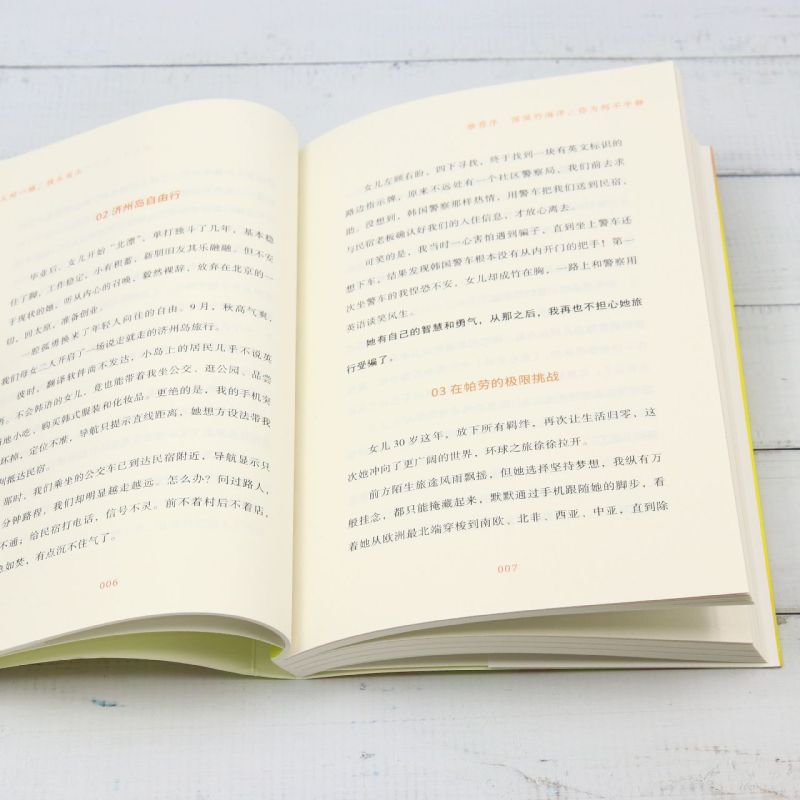 02 济州岛自由行
毕业后，女儿开始“北漂”，单打独斗了几年，基本稳
住了脚，工作稳定，小有积蓄，新朋旧友其乐融融。但不安
于现状的她，听从内心的召唤，毅然裸辞，放弃在北京的一
切，回太原，准备创业。
一腔孤勇换来了年轻人向往的自由。9 月，秋高气爽，
我们母女二人开启了一场说走就走的济州岛旅行。
彼时，翻译软件尚不发达，小岛上的居民几乎不说英
不会韩语的女儿，竟也能带着我坐公交、逛公园、品尝
地小吃、购买韩式服装和化妆品。更绝的是，我的手机突
坏掉，定位不准，导航只提示直线距离，她想方设法带我
抵达民宿。
那时，我们乘坐的公交车已到达民宿附近，导航显示只
分钟路程。我们却明显越走越远。怎么办？问过路人，
不通；给民宿打电话，信号不灵。前不着村后不着店，
急如焚，有点沉不住气了。
006
推荐序
女儿左顾右盼，四下寻找，终于找到一块有英文标识的
路边指示牌，原来不远处有一个社区警察局，我们前去求
助。没想到，韩国警察那样热情，用警车把我们送到民宿，
与民宿老板确认好我们的入住信息，才放心离去。
可笑的是，我当时一心害怕遇到骗子，直到坐上警车还
想下车，结果发现韩国警车根本没有从内开门的把手！第一
次坐警车的我惶恐不安，女儿却成竹在胸，一路上和警察用
英语谈笑风生。
她有自己的智慧和勇气，从那之后，我再也不担心她旅
行受骗了。
03 在帕劳的极限挑战
女儿 30 岁这年，放下所有羁绊，再次让生活归零，这
次她冲向了更广阔的世界，环球之旅徐徐拉开。
前方陌生旅途风雨飘摇，但她选择坚持梦想，我纵有万
般挂念，都只能掩藏起来，默默通过手机跟随她的脚步，看
着她从欧洲最北端穿梭到南欧、北非、西亚、中亚，直到除
007